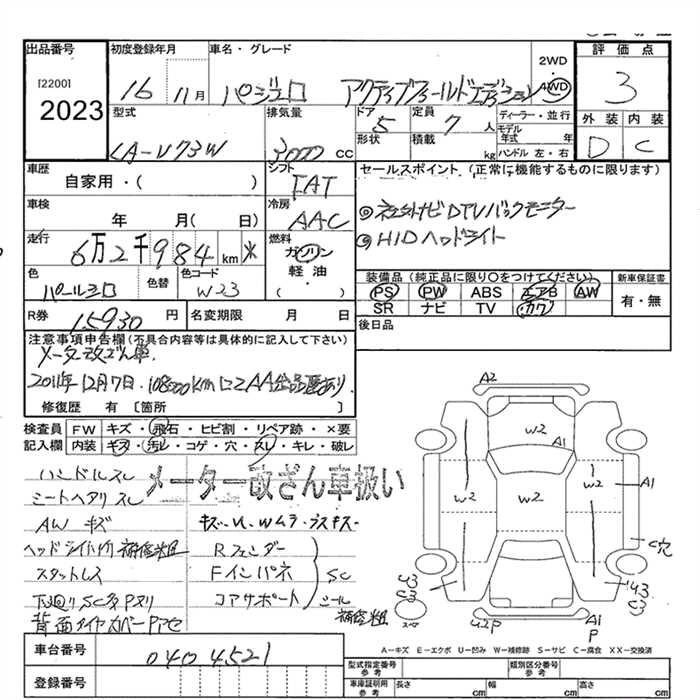 出品番号 初度登録年月 車名・グレード 2WD 評価点
[2200] 16 11月 パジェロ アクティブフィールドエディション 4WD 3
2023 型式 排気量 ドア 定員 ディーラー・並行 外装 内装
LA-V73W 3000 CC 5 7人 モデル年式 年 D C
形状 積載 kg ハンドル 左・右
車歴 シフト セールスポイント(正常に機能するものに限ります)
自家用・( ) FAT
車検 冷房 ◎社外ナビDTVバックモニター
年 月( 日) AAC ◎HIDヘッドライト
走行 燃料
6万2千984km米 ガソリン
軽油・
( )
色 色替 色コード 装備品(純正品に限り○をつけてください) 新車保証書
パールシロ W23 PS PW ABS エアB AW 有・無
SR ナビ TV カワ
R券 15930円 名変期限 月 日 後日品
注意事項申告欄(不具合内容等は具体的に記入して下さい)
メーター改ざん車.
2011年12月7日、108000kmにてAA出品歴あり
修復歴 有 〔箇所
検査員 FW キズ・飛石・ヒビ割・リペア跡・×要
記入欄 内装 キズ・汚レ・コゲ・穴・スレ・キレ・破レ
ハンドルスレ メーター改ざん車扱い
シートヘタリスレ
AWキズ キズ、U、Wムラ、ラスキズ-
ヘッドライト 補修粗 Rフェンダー
スタットレス Fインパネ SC
下廻りSC多Pヌリ コアサポート シール
背面タイヤカバーPアセ 補修粗
A2
W2 A1
W2 W2 W2 A1
C穴
U3 C3 U3 C3
スペア U2P A1 P
A－キズ E－エクボ U－凹み W－補修跡 S－サビ C－腐食 XX－交換済
車台番号 0404521
登録番号
型式指定番号 参考 類別区分番号 参考
車庫証明用 参考 長さ cm 幅 cm 高さ cm